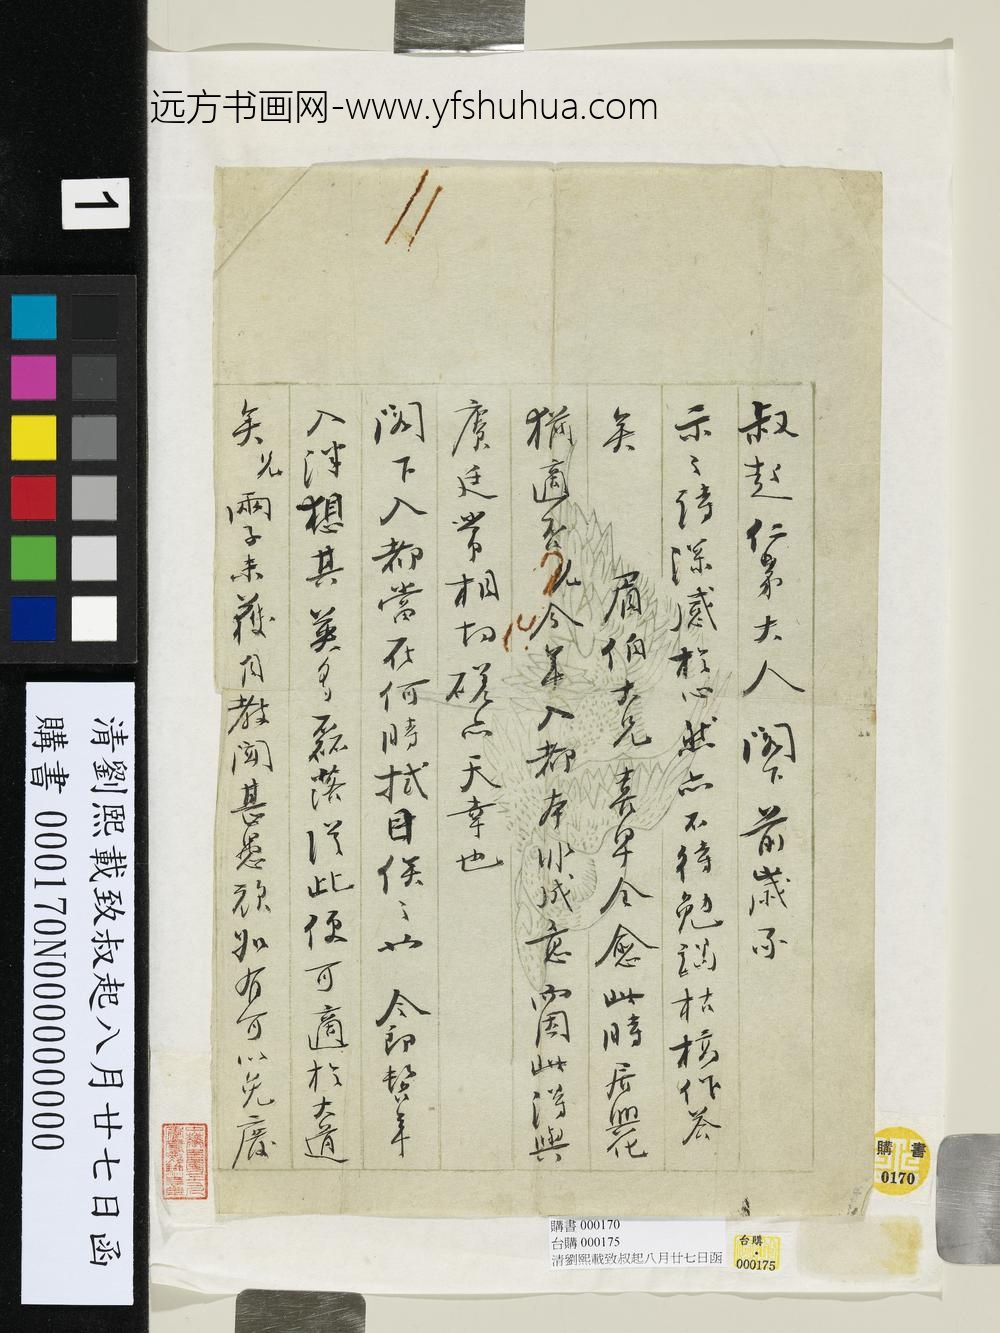 远方书画网-www.yfshuhua.com
1
叔起仁弟大人 閣下前歲示
示之詩深感於心然亦不待勉謁枯楊作答
矣 眉伯大兄喜早全愈此時居興化
猶適否兄今年入都本非成意因此得與
廣廷常相切磋亦天幸也
閣下入都當在何時拭目俟之 令郎嵇年
入泮想其英多磊落從此便可適於大道
矣兄兩子未獲自教聞甚愚頑如有可以免廢
清劉熙載致叔起八月廿七日函
購書 000170N000000000
購書
0170
購書 000170
台購 000175
清劉熙載致叔起八月廿七日函
台購
000175